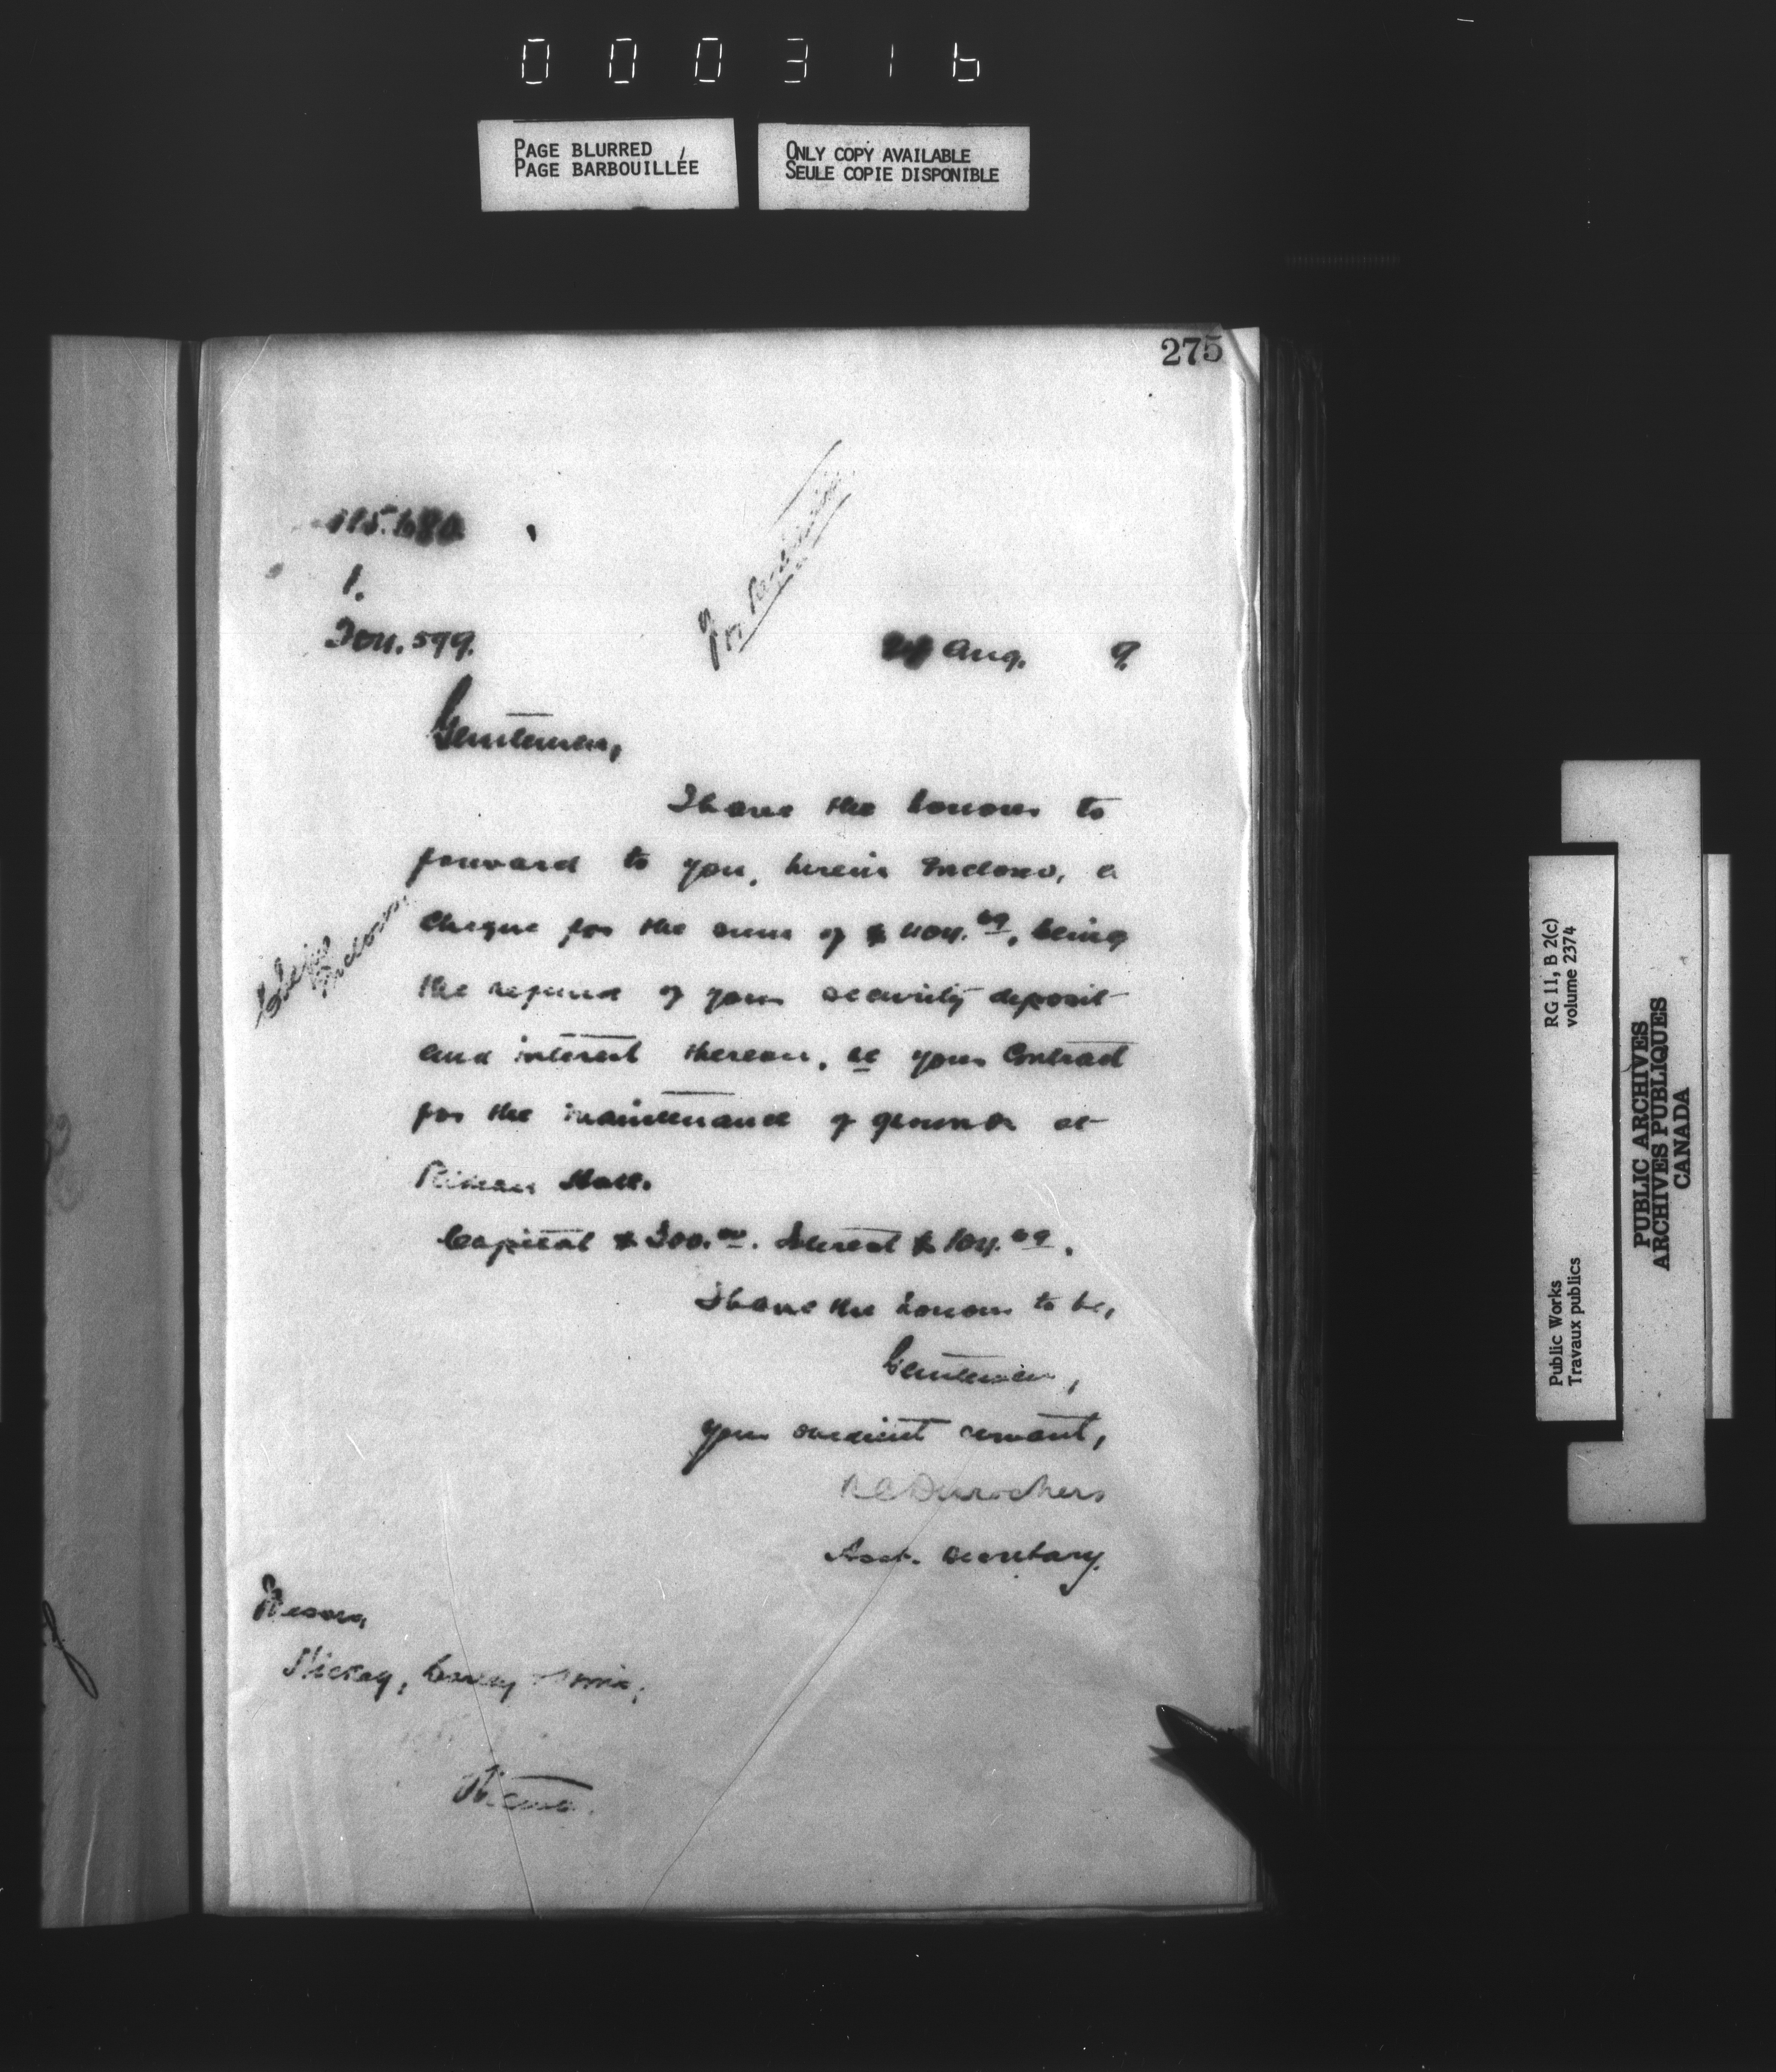 000316
PAGE BLURRED
PAGE BARBOUILLÉE
ONLY COPY AVAILABLE
SEULE COPIE DISPONIBLE
275
1.
599.
Aug. 9.
Gentlemen,
I have the honour to
forward to you, herein inclosed, a
cheque for the sum of $404.09, being
the refund of your security deposit
and interest thereon, re your Contract
for the maintenance of grounds at
Rideau Hall.
Capital $300.00. Interest $104.09.
I have the honour to be,
Gentlemen,
Your obedient servant,
RC Desrochers
Asst. Secretary.
Messrs,
Hickey,
Ottawa.
Public Works
Travaux publics
RG 11, B 2(c)
volume 2374
PUBLIC ARCHIVES
ARCHIVES PUBLIQUES
CANADA